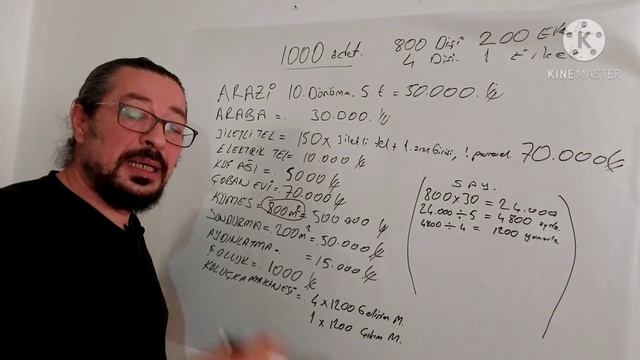 1000 adet. 800 Dişi 200 Erkek
4 Dişi. 1 Erkek
KINEMASTER
ARAZİ 10. Dönüme. 5 ₺ = 50.000. ₺
ARABA = 30.000. ₺
JİLETLİ TEL = 150 x Jiletli tel + 1. 70.000 ₺
ELEKTRİK TEL = 10.000 ₺
KUŞ AĞI = 5000 ₺
ÇOBAN EVİ = 70.000 ₺
KÜMES = 800 m² = 500.000 ₺
SUNDURMA = 200 m² = 50.000 ₺
AYDINLATMA = 15.000 ₺
FOLLUK = 1000 ₺
KULUÇKA MAKİNESİ = 4 x 1200 Gelişim M.
1 x 1200 Çıkım M.
SAY.
800 x 30 = 24.000
24.000 ÷ 5 = 4800
4800 ÷ 4 = 1200 yumurta